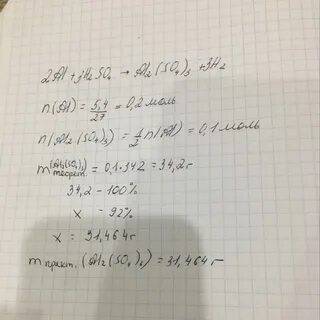 2Al + 3H₂SO₄ → Al₂(SO₄)₃ + 3H₂
n(Al) = 5,4/27 = 0,2 моль
n(Al₂(SO₄)₃) = 1/2 n(Al) = 0,1 моль
m теорет. (Al₂(SO₄)₃) = 0,1·342 = 34,2 г
34,2 – 100%
x – 92%
x = 31,464 г
m практ. (Al₂(SO₄)₃) = 31,464 г